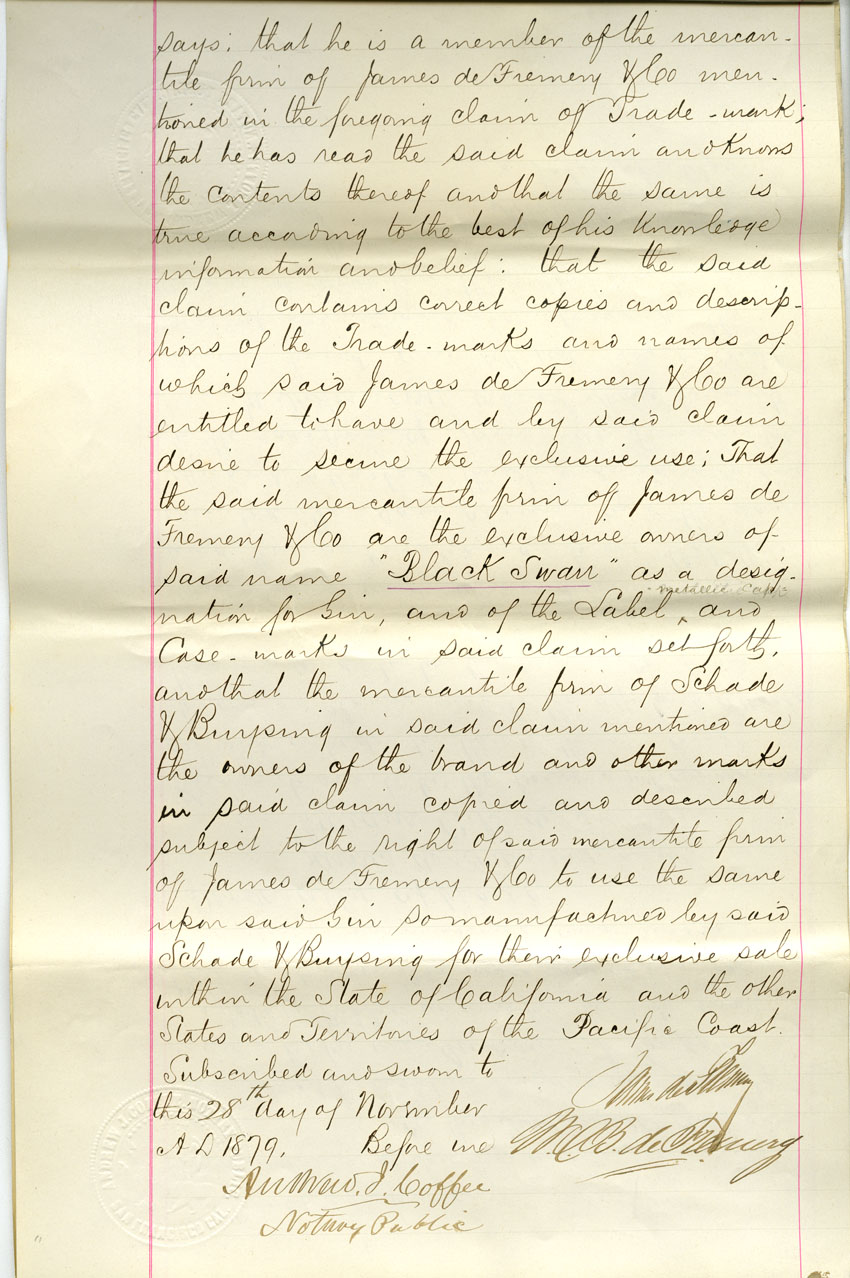 says; that he is a member of the mercan-
tile firm of James de Fremery & Co men-
tioned in the foregoing claim of Trade-mark;
that he has read the said claim and Knows
the contents thereof and that the same is
true according to the best of his Knowledge
information and belief: that the said
claim contains correct copies and descrip-
tions of the Trade-marks and names of
which said James de Fremery & Co are
entitled to have and by said claim
desire to secure the exclusive use; That
the said mercantile firm of James de
Fremery & Co are the exclusive owners of
said name "Black Swan" as a desig-
metallic Caps
nation for Gin, and of the Label, and
Case-marks in said claim set forth,
and that the mercantile firm of Schade
& Buysing in said claim mentioned are
the owners of the brand and other marks
in said claim copied and described
subject to the right of said mercantile firm
of James de Fremery & Co to use the same
upon said Gin so manufactured by said
Schade & Buysing for their exclusive sale
within the State of California and the other
States and Territories of the Pacific Coast.
Subscribed and sworn to
this 28th day of November
James de Fremery
A D 1879. Before me
W. C. B. de Fremery
Andrew J. Coffee
Notary Public